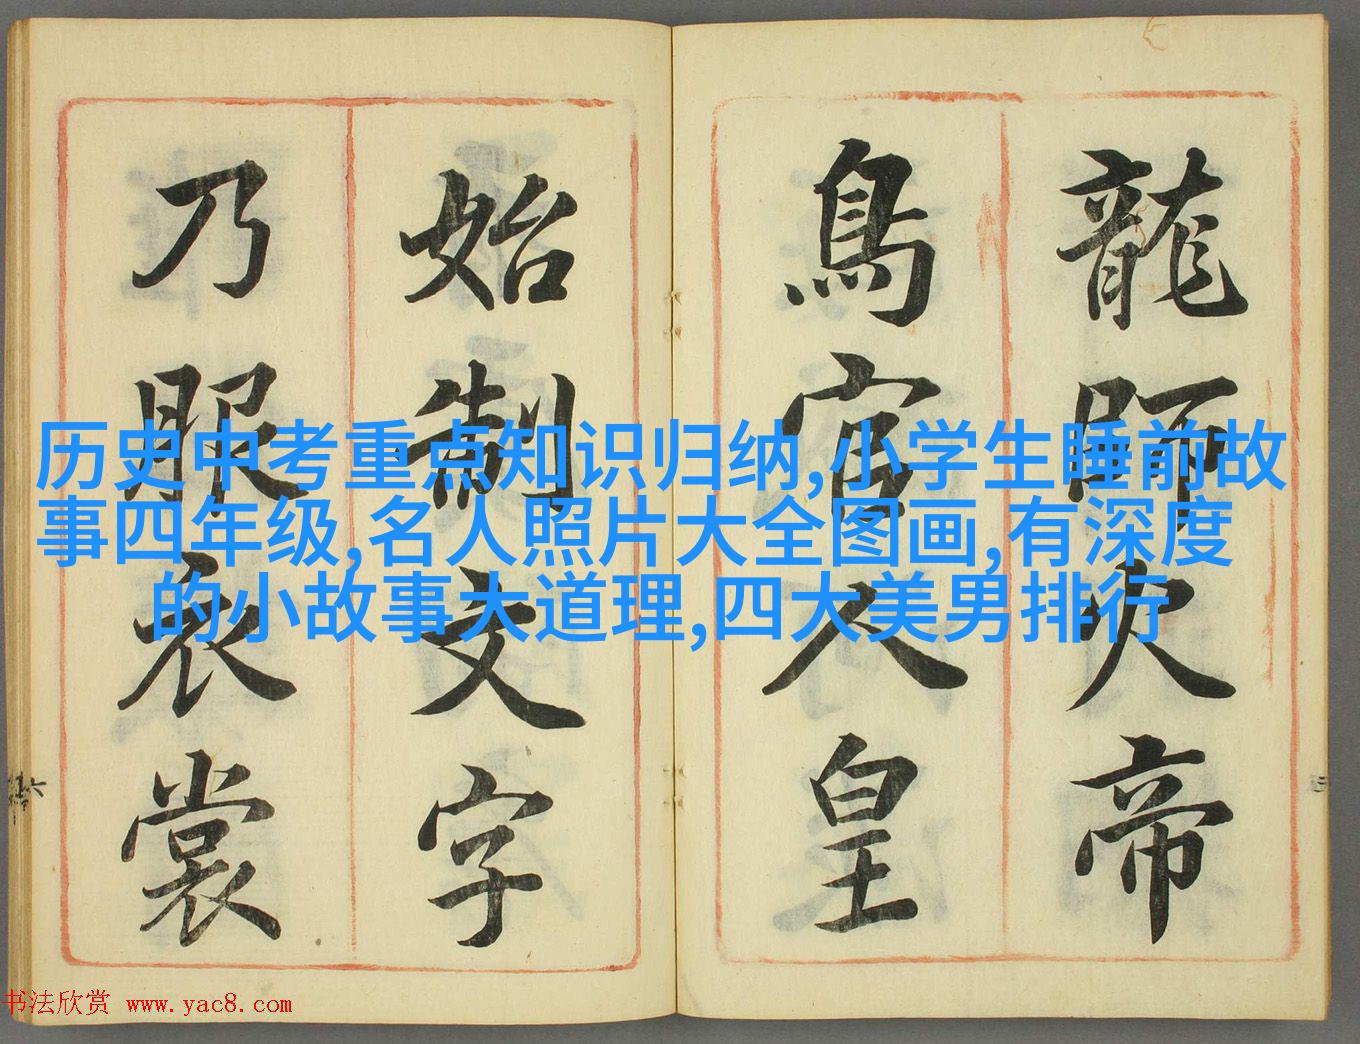 龍師火帝
鳥官人皇
始制文字
乃服衣裳
历史中考重点知识归纳,小学生睡前故
事四年级,名人照片大全图画,有深度
的小故事大道理,四大美男排行
书法欣赏 www.yac8.com